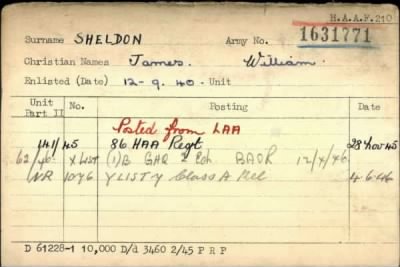 H.A.A.F. 210
Surname SHELDON Army No. 1631771
Christian Names James. William.
Enlisted (Date) 12-9-40 Unit
Unit Part II No. Posting Date
Posted from LAA
141/45 86 HAA Regt 28 Nov 45
62/46 X LIST (1)B GHQ 2 Ech BAOR 12/4/46
NR 1076 Y LIST Class A Rel 4.6.46
D 61228-1 10,000 D/d 3460 2/45 P R P